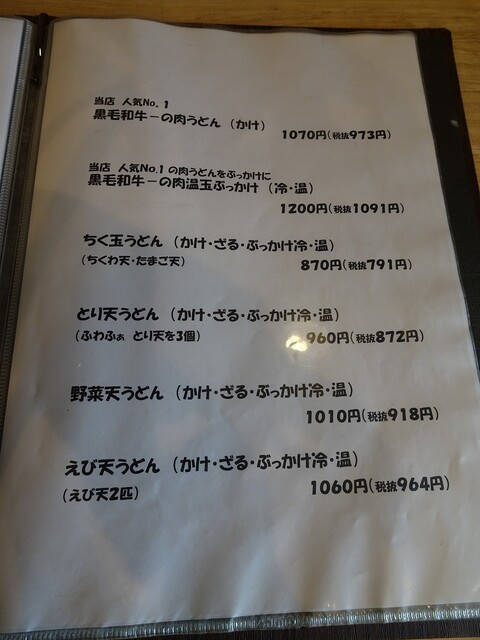 当店 人気No.1
黒毛和牛一の肉うどん（かけ）
1070円(税抜973円)
当店 人気No.1の肉うどんをぶっかけに
黒毛和牛一の肉温玉ぶっかけ（冷・温）
1200円(税抜1091円)
ちく玉うどん（かけ・ざる・ぶっかけ冷・温）
（ちくわ天・たまご天） 870円(税抜791円)
とり天うどん（かけ・ざる・ぶっかけ冷・温）
（ふわふぁ とり天を3個） 960円(税抜872円)
野菜天うどん（かけ・ざる・ぶっかけ冷・温）
1010円(税抜918円)
えび天うどん（かけ・ざる・ぶっかけ冷・温）
（えび天2匹） 1060円(税抜964円)